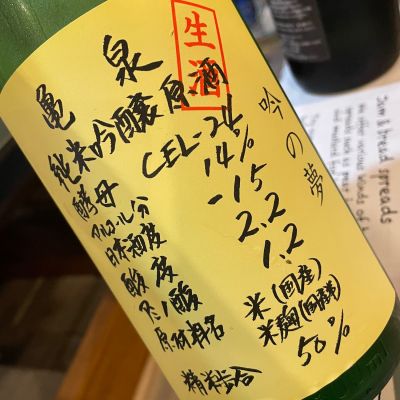 生酒
亀泉
純米吟醸原酒
吟の夢
酵母 CEL-24
アルコール分 14%
日本酒度 -15
酸度 2.2
アミノ酸 1.2
原材料名 米(国産)
米麹(国産米)
精米歩合 50%
Jam & bread spreads
We offer various kinds of
spreads such as